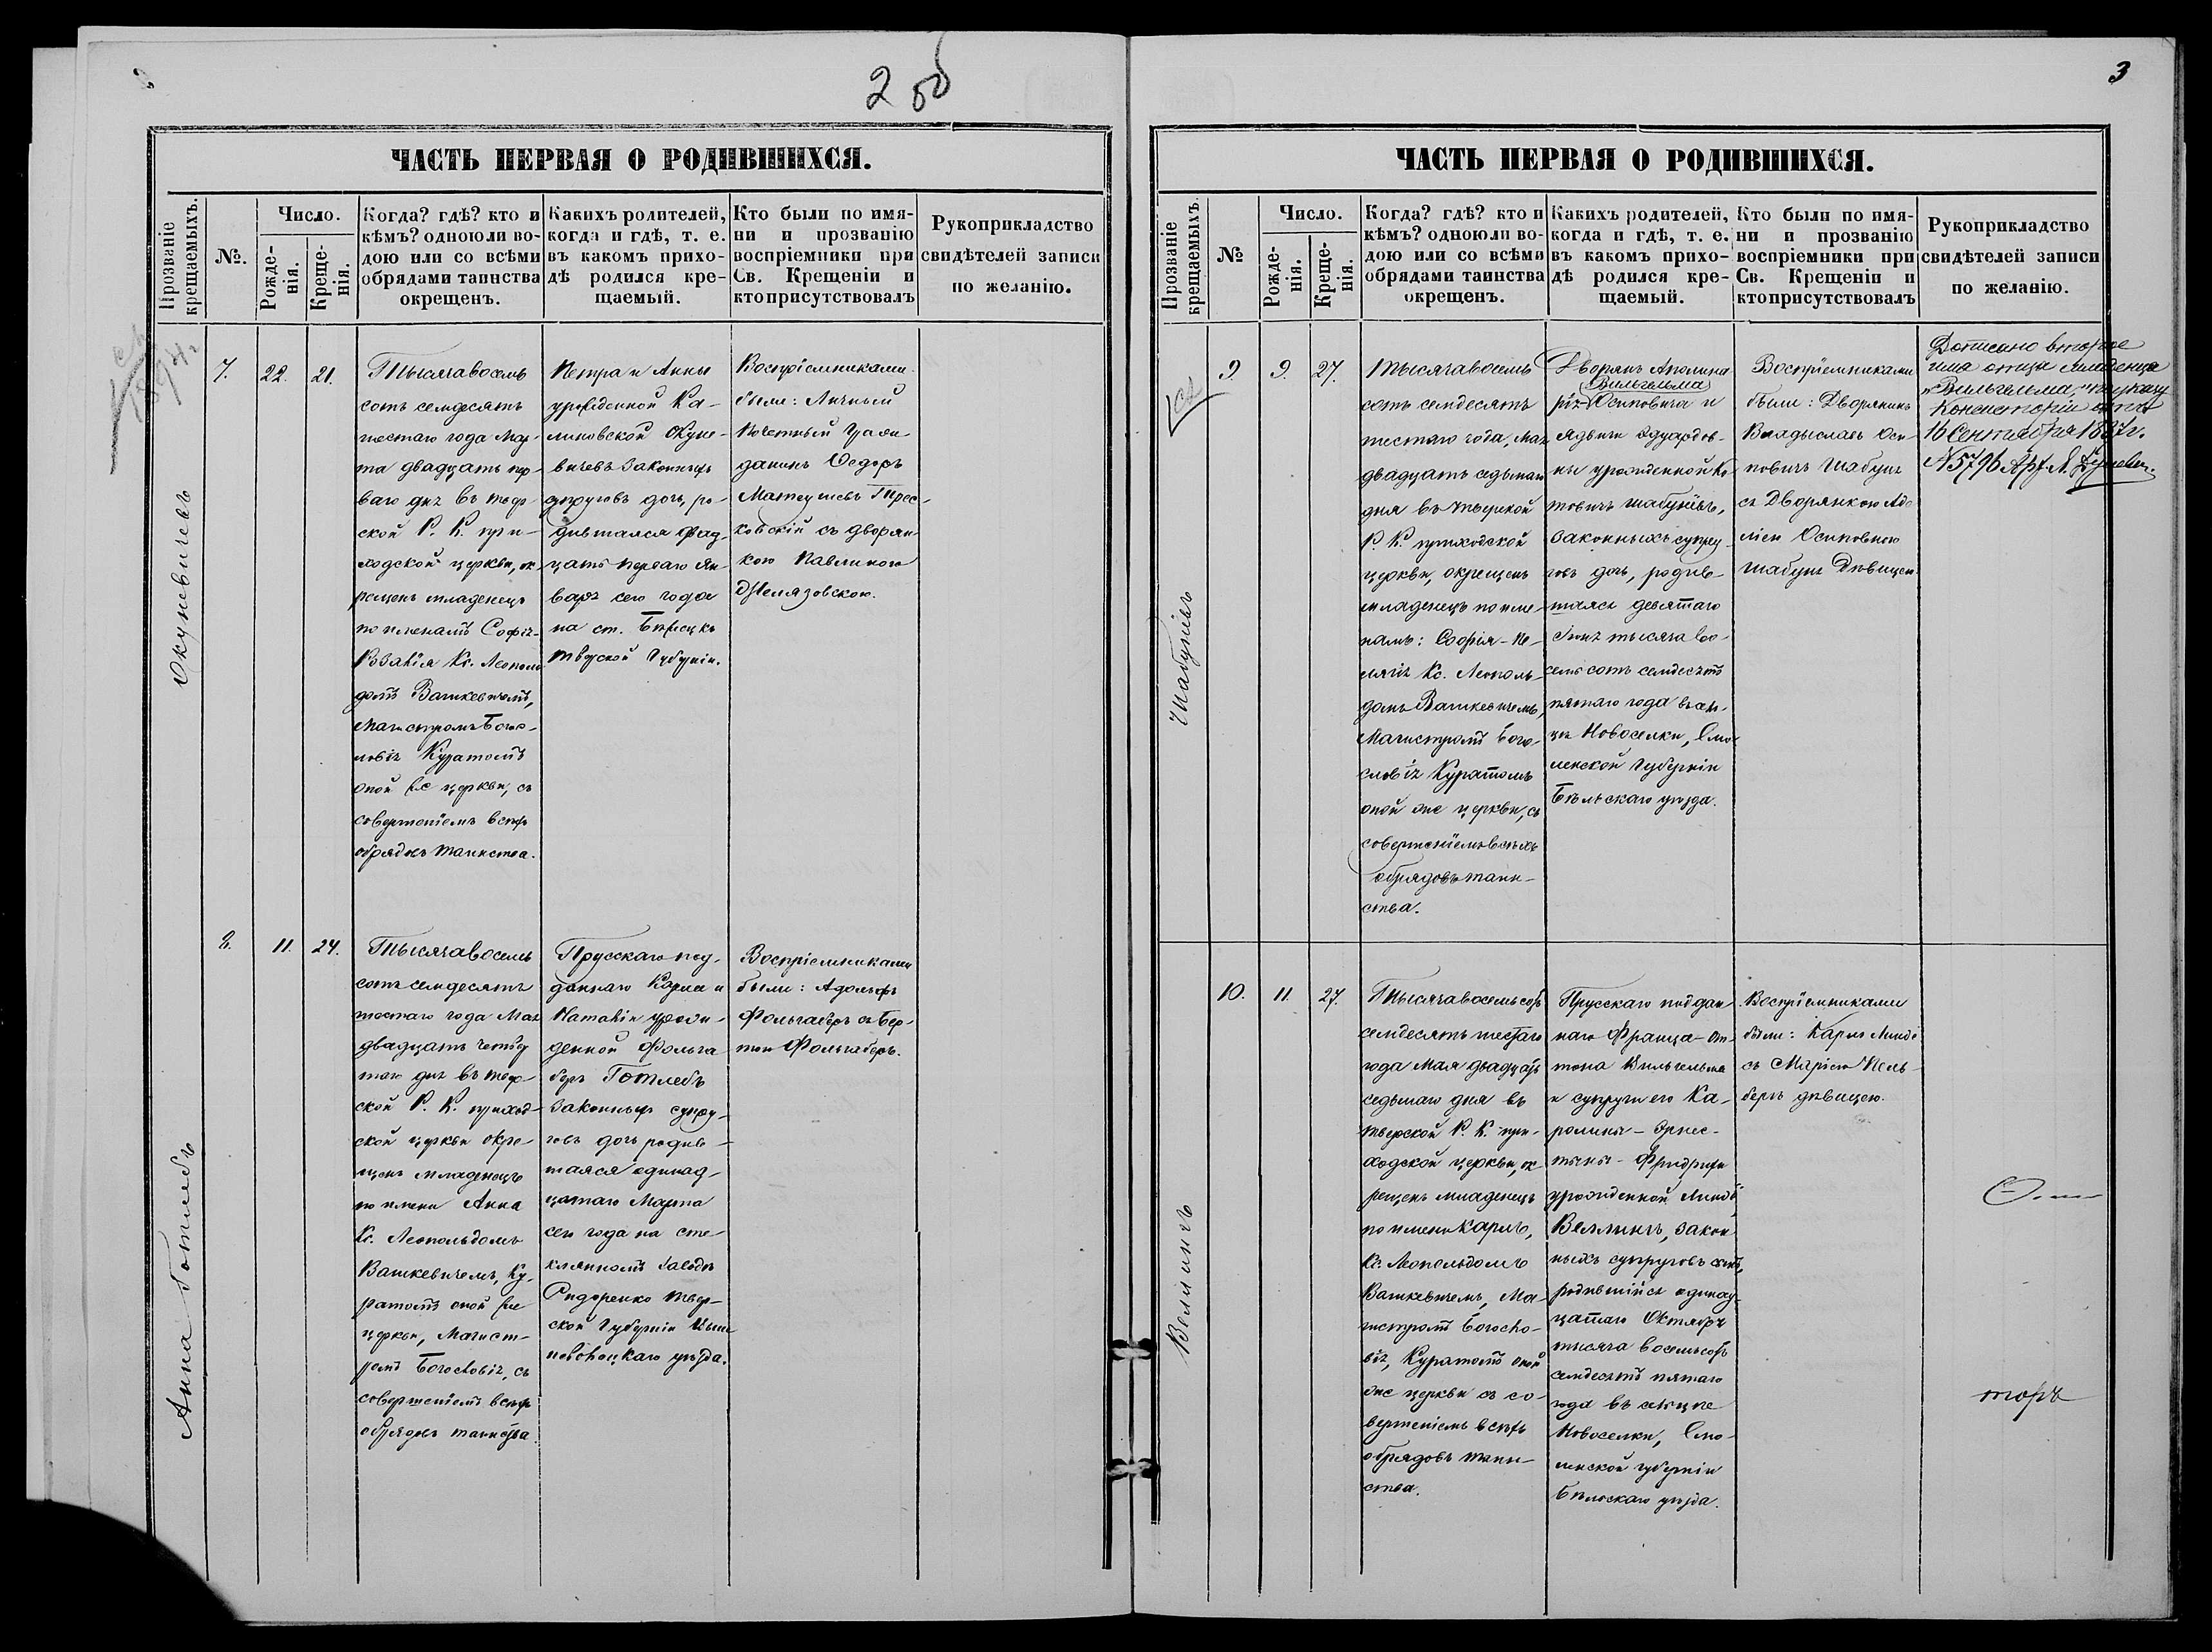 2 об
ЧАСТЬ ПЕРВАЯ О РОДИВШИХСЯ.
Прозваніе крещаемыхъ.
№.
Число.
Рожде-
нія.
Креще-
нія.
Когда? гдѣ? кто и
кѣмъ? одною ли во-
дою или со всѣми
обрядами таинства
окрещенъ.
Какихъ родителей,
когда и гдѣ, т. е.
въ какомъ прихо-
дѣ родился кре-
щаемый.
Кто были по имя-
ни и прозванію
воспріемники при
Св. Крещеніи и
кто присутствовалъ
Рукоприкладство
свидѣтелей записи
по желанію.
Окуневичевъ
7.
22.
21.
Тысяча восемь
сотъ семдесятъ
шестаго года Мар-
та двадцать пер-
ваго дня въ Твер-
ской Р. К. при-
ходской церкви, ок-
рещенъ младенецъ
по именамъ Софія-
Розалія Кс. Леополь-
домъ Вашкевичемъ,
Магистромъ Бого-
словія Куратомъ
оной же церкви, съ
совершеніемъ всѣхъ
обрядовъ таинства.
Петра и Анны
урожденной Ка-
линовской Окуне-
вичевъ законныхъ
супруговъ дочь, ро-
дившаяся двад-
цать перваго Ян-
варя сего года
на ст. Бѣжецкъ
Тверской Губерніи.
Воспріемниками
были: Личный
Почетный Граж-
данинъ Ѳедоръ
ковскій съ дворян-
кою Павлиною
8.
11.
24.
Анна Готлебъ
Тысяча восемь
сотъ семдесятъ
шестаго года Мая
двадцать четвер-
таго дня въ Твер-
ской Р. К. приход-
ской церкви окре-
щенъ младенецъ
по имени Анна
Кс. Леопольдомъ
Вашкевичемъ, Ку-
ратомъ оной же
церкви, Магист-
ромъ Богословія, съ
совершеніемъ всѣхъ
обрядовъ таинства.
Прусскаго под-
даннаго Карла и
Наталіи урож-
денной Фольга
беръ Готлебъ
законныхъ супру-
говъ дочь родив-
шаяся одинад-
цатаго Марта
сего года на сте-
клянномъ заводѣ
Твер-
ской Губерніи Выш
неволоцкаго уѣзда.
Воспріемниками
были: Адольфъ
Фольгаберъ съ Бер-
тою Фольгаберъ.
3
ЧАСТЬ ПЕРВАЯ О РОДИВШИХСЯ.
Прозваніе крещаемыхъ.
№
Число.
Рожде-
нія.
Креще-
нія.
Когда? гдѣ? кто и
кѣмъ? одною ли во-
дою или со всѣми
обрядами таинства
окрещенъ.
Какихъ родителей,
когда и гдѣ, т. е.
въ какомъ прихо-
дѣ родился кре-
щаемый.
Кто были по имя-
ни и прозванію
воспріемники при
Св. Крещеніи и
кто присутствовалъ
Рукоприкладство
свидѣтелей записи
по желанію.
Шабуніо
9.
9.
27.
Тысяча восемь
сотъ семдесятъ
шестаго года, Мая
двадцать седьмаго
дня въ Тверской
Р. К. приходской
церкви, окрещенъ
младенецъ по име-
намъ: Софія-Пе-
лагія Кс. Леополь-
домъ Вашкевичемъ,
Магистромъ Бого-
словія Куратомъ
оной же церкви, съ
совершеніемъ всѣхъ
обрядовъ таин-
ства.
Дворянъ Аполина
Вильгельма
рія Осиповича и
Ядвиги Эдуардов-
ны урожденной Ко
товичъ Шабуніо,
законныхъ супру-
говъ дочь, родив-
шаяся девятаго
Іюня тысяча во-
семь сотъ семдесятъ
пятаго года въ сель-
цѣ Новоселки, Смо-
ленской Губерніи
Бѣльскаго уѣзда.
Воспріемниками
были: Дворянинъ
Владыславъ Оси-
повичъ Шабуніо
съ Дворянкою Аде
ліею Осиповною
Шабуніо Дѣвицею.
Дописано второе
имя отца младенца
„Вильгельма," по указу
Консисторіи отъ
16 Сентября 1887 г.
№ 5796
10.
11.
27.
Веллингъ
Тысяча восемьсотъ
семдесятъ шестаго
года Мая двадцать
седьмаго дня въ
Тверской Р. К. при-
ходской церкви, ок-
рещенъ младенецъ
по имени Карлъ,
Кс. Леопольдомъ
Вашкевичемъ, Ма-
гистромъ Богосло-
вія, Куратомъ оной
же церкви съ со-
вершеніемъ всѣхъ
обрядовъ таин-
ства.
Прусскаго поддан
наго Франца-Ан-
тона Вильгельма
и супруги его Ка-
ролины-Эрнес-
тины-Фридрики
урожденной Линдъ
Веллингъ, закон
ныхъ супруговъ сынъ,
родившійся одинад-
цатаго Октября
тысяча восемьсотъ
семдесятъ пятаго
года въ сельцѣ
Новоселки, Смо-
ленской губерніи
Бѣльскаго уѣзда.
Воспріемниками
были: Карлъ Линдъ
съ Маріею Гель-
беръ дѣвицею.